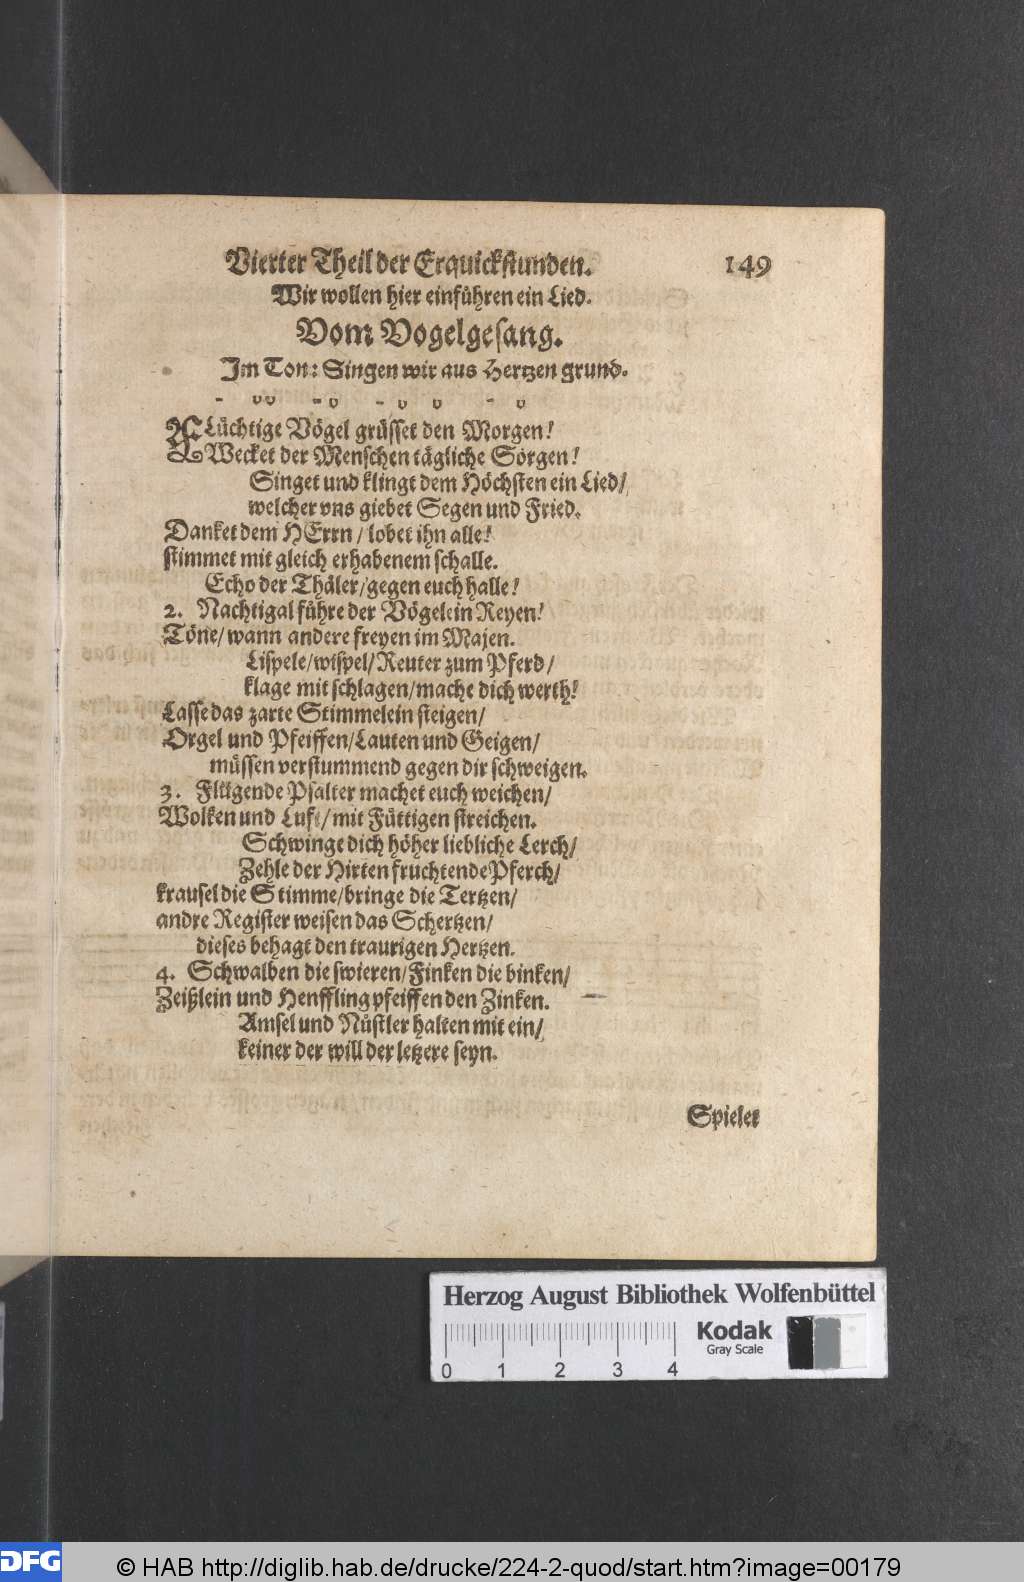 Vierter Theil der Erquickstunden. 149
Wir wollen hier einführen ein Lied.
Vom Vogelgesang.
Im Ton: Singen wir aus Hertzen grund.
- ᴗᴗ -ᴗ -ᴗ ᴗ -ᴗ
Lüchtige Vögel grüsset den Morgen!
Wecket der Menschen tägliche Sorgen!
Singet und klingt dem Höchsten ein Lied/
welcher vns giebet Segen und Fried.
Danket dem HErrn / lobet ihn alle!
stimmet mit gleich erhabenem schalle.
Echo der Thäler/gegen euch halle!
2. Nachtigal führe der Vögelein Reyen!
Töne/ wann andere freyen im Majen.
Lispele/wispel/Reuter zum Pferd/
klage mit schlagen/mache dich werth!
Lasse das zarte Stimmelein steigen/
Orgel und Pfeiffen/Lauten und Geigen/
müssen verstummend gegen dir schweigen.
3. Flügende Psalter machet euch weichen/
Wolken und Luft/mit Füttigen streichen.
Schwinge dich höher liebliche Lerch/
Zehle der Hirten fruchtende Pferch/
krausel die Stimme/bringe die Tertzen/
andre Register weisen das Schertzen/
dieses behagt den traurigen Hertzen.
4. Schwalben die swieren/Finken die binken/
Zeißlein und Henffling pfeiffen den Zinken.
Amsel und Nüstler halten mit ein/
keiner der will der letzere seyn.
Spielet
Herzog August Bibliothek Wolfenbüttel
Kodak
Gray Scale
0 1 2 3 4
DFG © HAB http://diglib.hab.de/drucke/224-2-quod/start.htm?image=00179